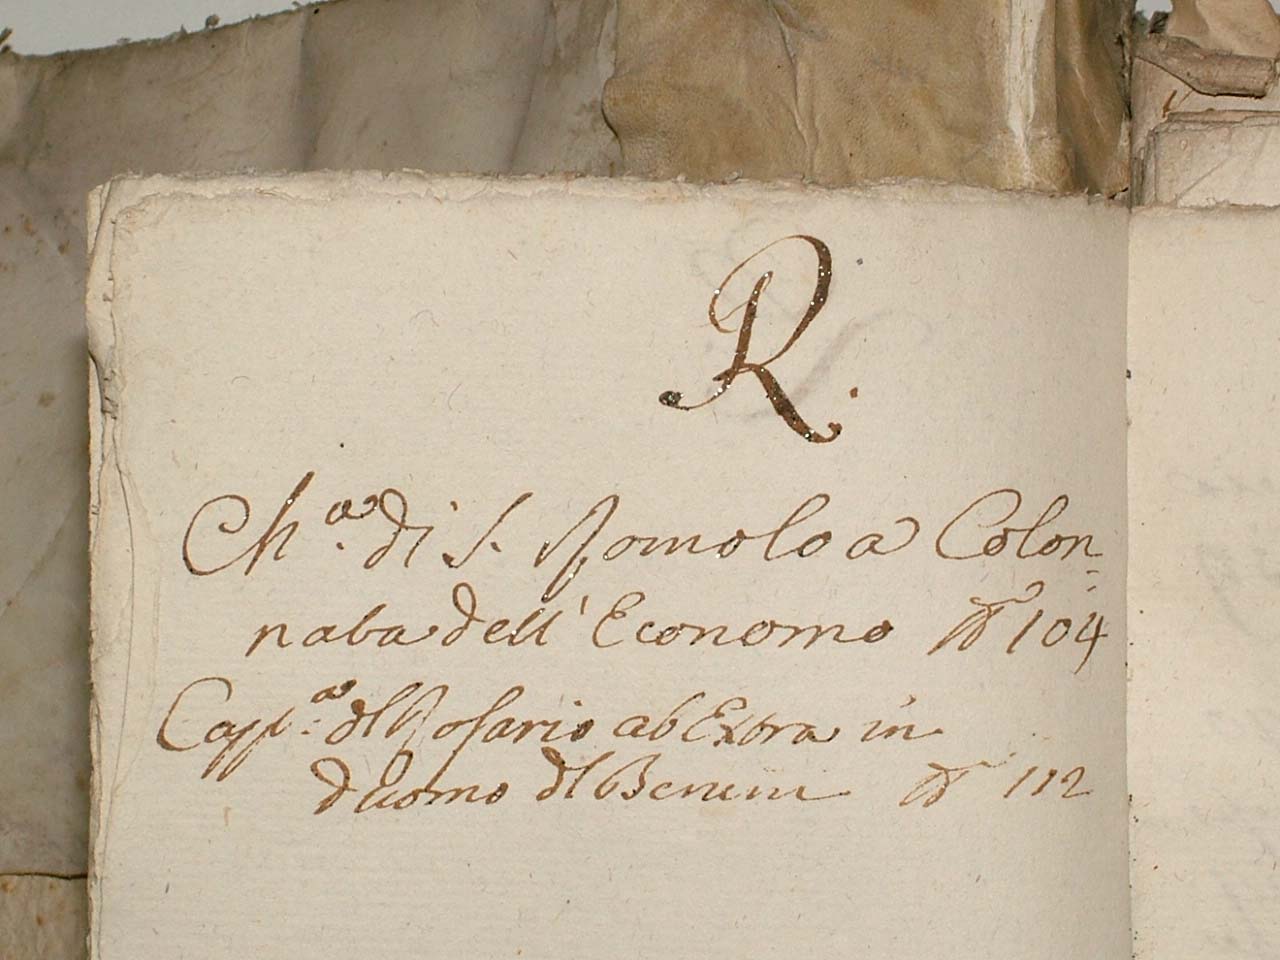 R.
Ch.a di S. Romolo a Colon=
nata dell' Economo 104
Capp.a del Rosario ab Extra in
duomo del 112